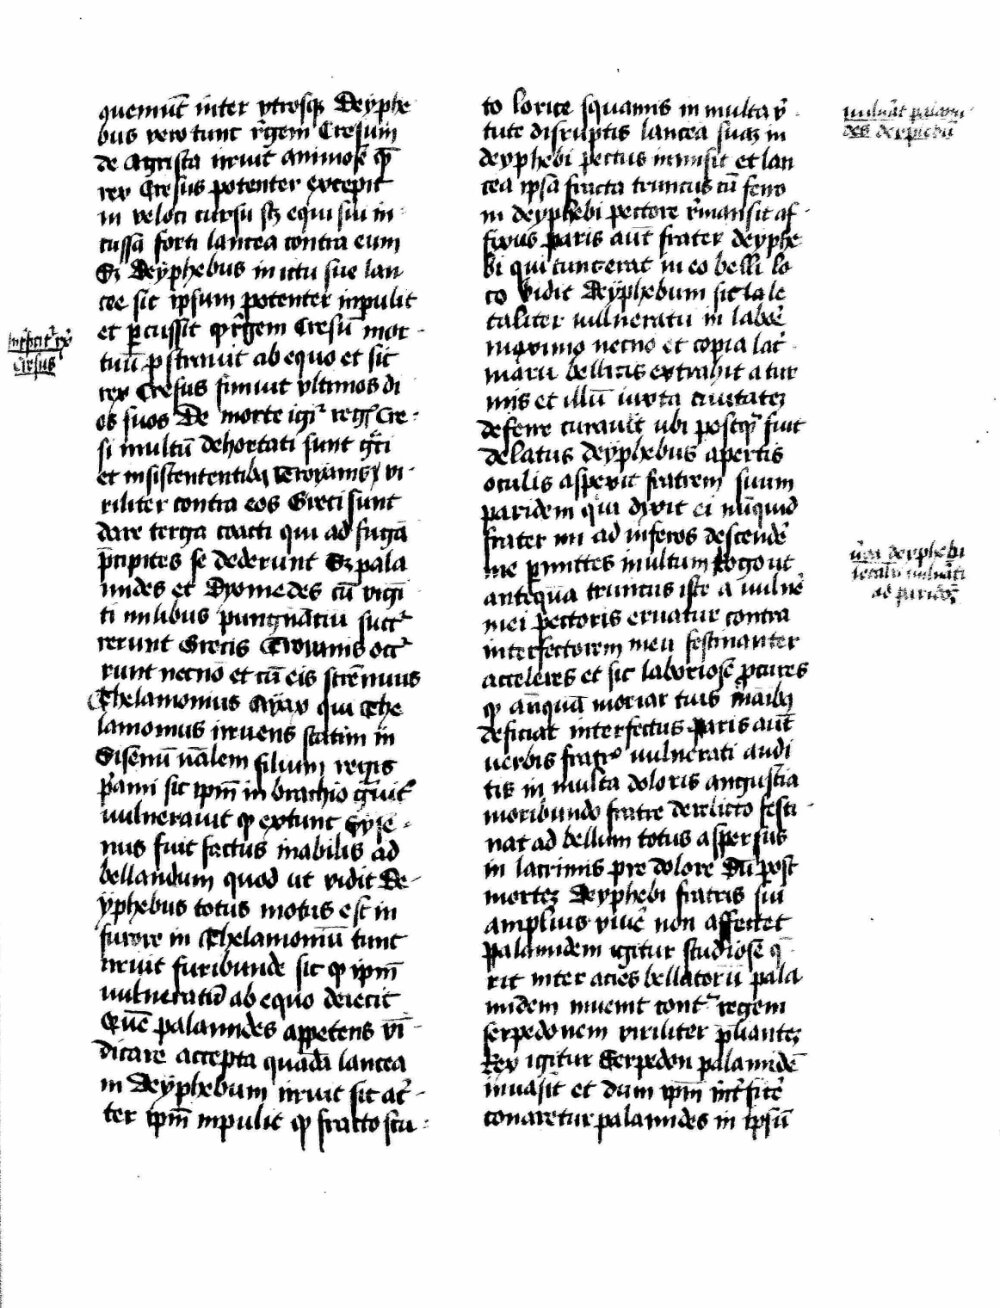 quemūt inter vtrosqꝫ Deyphe
bus vero tunc r̄gem Cresum
de Agrista irruit animose qͥ
rex Cresus potenter excepit
in veloci cursu sꝫ equi sui in
cussā forti lancea contra eum
Sꝫ Deyphebus in ictu sue lan
cee sic ipsum potenter impulit
et ꝑcussit ꝙ r̄gem Cresū mor
tuū ꝓstrauit ab equo et sic
rex Cresus finiuit vltimos di
es suos De morte igiᷣ regꝭ Cre
si multū dehortati sunt gͥti
et insistententibꝫ Troyanis vi
riliter contra eos Greci sunt
dare terga coacti qui ad fugā
p̄cipites se dederunt Sꝫ pala
mides et Dyomedes cū vigi
ti milibus pungnātiū succᷣ
rerunt Grecis Troyanis occᷣ
runt necnō et cū eis strēnuus
Thelamonius Ayax qui The
lamonius irruens statim in
Sisenū nālem filium regis
p̄ami sic ip̄m in brachio gͣuitᷣ
vulnerauit ꝙ extunc Syse
nus fuit factus inabilis ad
bellandum quod ut vidit De
yphebus totus motus est in
furore in Thelamoniū tunc
irruit furibunde sic ꝙ ip̄m
vulneratū ab equo deiecit
Quē palamides appetens vī
dicare accepta quadā lancea
in Deyphebum irruit sic acᷣ
ter ip̄m inpulit ꝙ fracto scu
to lorice squamis in multa vͥ
tute disruptis lancea suaꝫ in
deyphebi pectus inmisit et lan
cea ipsa fracta truncus cū ferro
in deyphebi pectore r̄mansit af
fixus paris aūt frater deyphe
bi qui tunc erat in eo belli lo
co vidit Deyphebum sic la le
taliter vulneratū in laboᷣe
maximo necnō et copia lacᷣ
marū bellicis extrahit a tur
mis et illū iuxta ciuitateꝫ
deferre curauit ubi postqͣ fuit
delatus deyphebus apertis
oculis aspexit fratrem suum
paridem qui dixit ei nūquid
frater mi ad inferos descendeᷣ
me ꝑmittes multum Rogo ut
antequā truncus iste a vulneᷣ
mei pectoris eruatur contra
interfectorem meū festinanter
acceleres et sic laboriose ꝓcures
ꝙ anquā moriar tuis māibꝫ
deficiat interfectus Paris aūt
verbis fratrꝭ vulnerati audi
tis in multa doloris angustia
moribundo fratre derelicto festi
nat ad bellum totus aspersus
in lacrimis pre dolore Dū post
morteꝫ Deyphebi fratris sui
amplius viuēᷣ non affectet
Palamidem igitur studiose q̄
rit inter acies bellatorū pala
midem inuenit contᷓ regem
serpedonem viriliter ꝓlianteꝫ
Rex igitur Serpedon palamidē
inuasit et dum ip̄m int̄ficeᷣ
conaretur palamides in ipsū
Int̄ficitᷣ rex
Cresus
vulnāt palami
des deyphebū
deyphebi
vulnāti
ad paridē